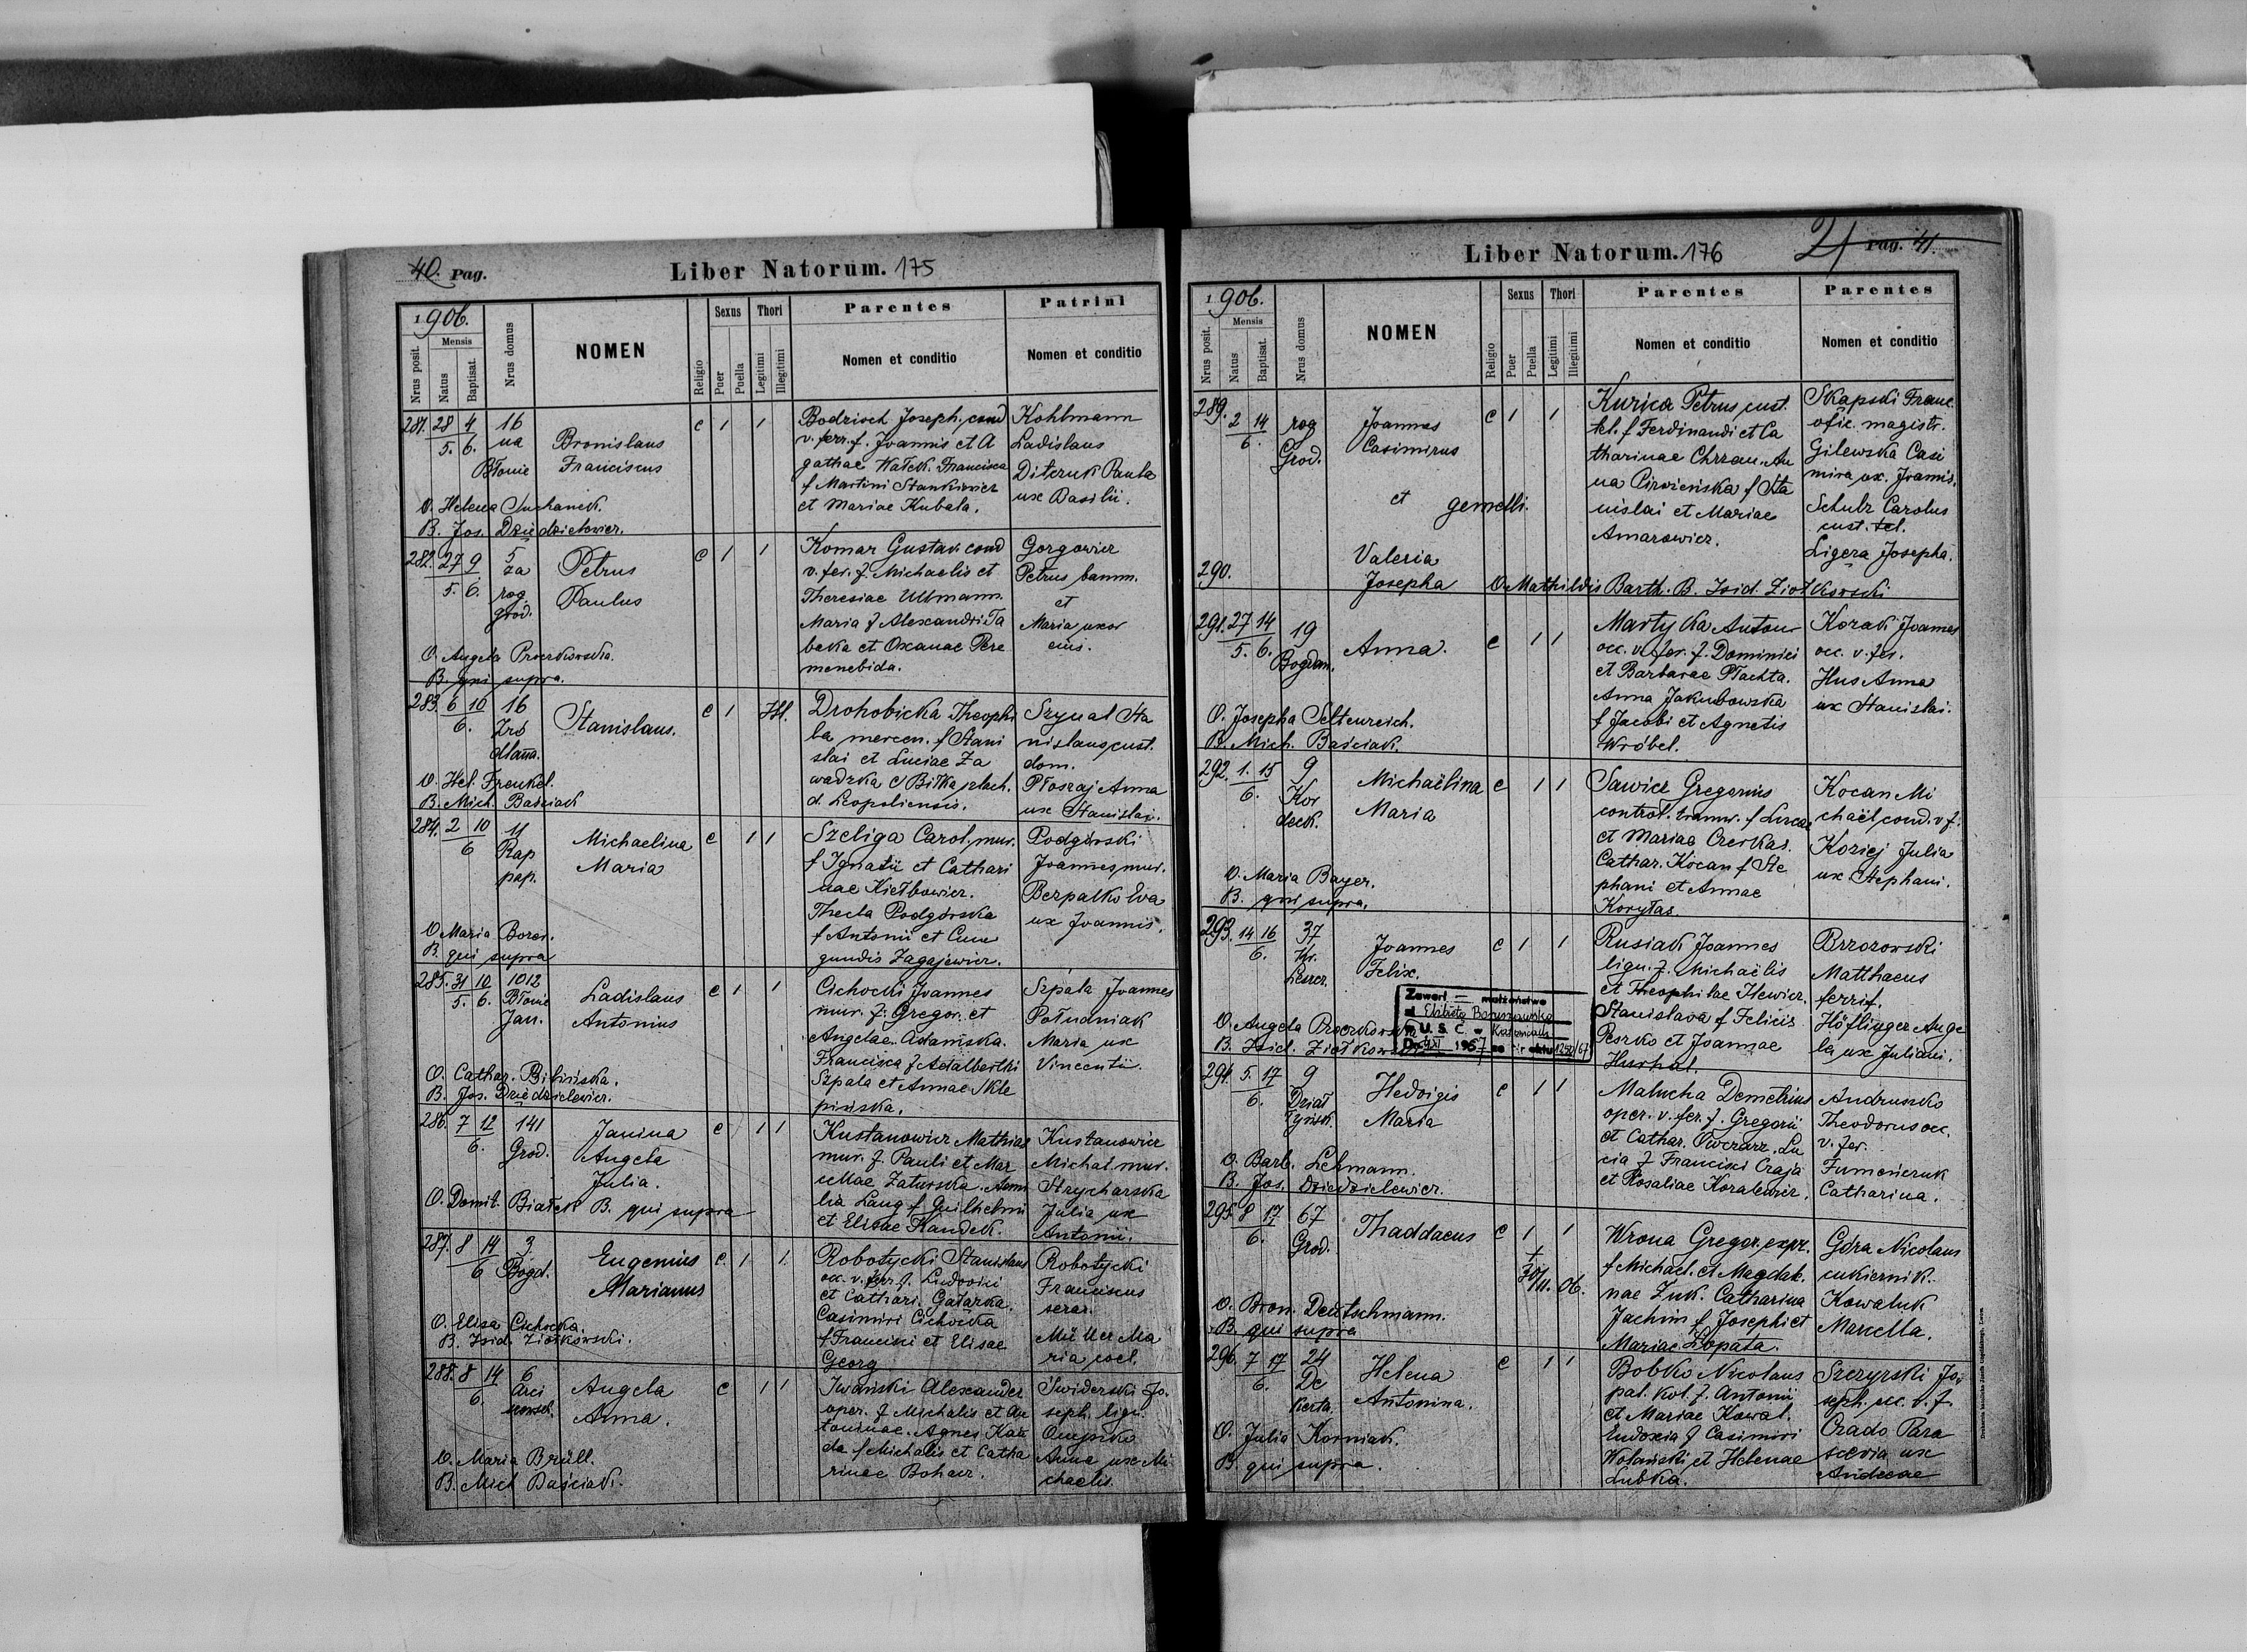 40. Pag.
Liber Natorum. 175
1906.
Nrus posit.
Mensis
Natus
Baptisat.
Nrus domus
NOMEN
Religio
Sexus
Puer
Puella
Thori
Legitimi
Illegitimi
Parentes
Nomen et conditio
Patrini
Nomen et conditio
281. 28 4 16
5. 6. na
Błonie
Bronislaus
Franciscus
c 1 1
Bodzioch Joseph. cond
v. ferr. f. Joannis et A
gathae Wałek. Francisca
f Martini Stankiewicz
et Mariae Kubala.
Kohlmann
Ladislaus
Diteruk Paula
ux Basilii.
O. Helena Suchanek.
B. Jos. Dziedzielewicz.
282. 27 9 5
5. 6. za
rog.
grod.
Petrus
Paulus
c 1 1
Komar Gustav. cond
v. fer. f. Michaelis et
Theresiae Ullmann.
Maria f Alexandri Ta
beka et Oxanae Pere
menebida.
Gorgowicz
Petrus bamm.
et
Maria uxor
eius.
O. Angela Proczkowska.
B. qui supra.
283. 6 10 16
6. Zró
dlana.
Stanislaus.
c 1 Ill.
Drohobicka Theophi
la mercen. f Stani
slai et Luciae Za
wadzka e Biłka szlach.
d. Leopoliensis.
Szynal Sta
nislaus cust.
dom.
Płoszaj Anna
ux Stanislai.
O. Hel. Frenkel.
B. Mich. Baściak
284. 2 10 11
6 Rap
pap.
Michaelina
Maria
c 1 1
Szeliga Carol. mur.
f Ignatii et Cathari
nae Kiełbowicz.
Thecla Podgórska
f Antonii et Cune
gundis Zagajewicz.
Podgórski
Joannes, mur.
Berpalko Eva
ux Joannis.
O. Maria Borer.
B. qui supra
285. 31 10 1012
5. 6. Błonie
Jan.
Ladislaus
Antonius
c 1 1
Cichocki Joannes
mur. f. Gregor. et
Angelae Adamska.
Francisca f Adalberthi
Szpala et Annae Skle
pińska.
Szpala Joannes
Południak
Maria ux
Vincentii.
O. Cathar. Bilińska.
B. Jos. Dziedzielewicz.
286. 7 12 141
6. Grod.
Janina
Angela
Julia.
c 1 1
Kustanowicz Mathias
mur. f. Pauli et Mar
cellae Zaturska. Aemi
lia Lang f Guilhelmi
et Elisae Handek.
Kustanowicz
Michał mur.
Strycharska
Julia ux
Antonii.
O. Domit. Białek B. qui supra
287. 8 14 3
6 Bogd.
Eugenius
Marianus
c 1 1
Robotycki Stanislaus
oc. v. ferr. f. Ludovici
et Cathari. Gałarka.
Casimiri Cichocka
f Francisci et Elisae
Georg
Robotycki
Franciscus
serar.
Müller Ma
ria coel.
O. Elisa Cichocka.
B. Isid. Ziołkowski.
288. 8 14 6
6. Arci
szewsk.
Angela
Anna.
c 1 1
Iwański Alexander
oper. f Michalis et An
toninae. Agnes Kału
da f Michalis et Catha
rinae Bohacz.
Swiderski Jo.
seph. lign.
Onyszko
Anna ux Mi
chaelis.
O. Maria Brüll.
B. Mich Baściak.
21 Pag. 41.
Liber Natorum. 176
1906.
Nrus posit.
Mensis
Natus
Baptisat.
Nrus domus
NOMEN
Religio
Sexus
Puer
Puella
Thori
Legitimi
Illegitimi
Parentes
Nomen et conditio
Parentes
Nomen et conditio
289. 2 14 rog
6. Grod.
Joannes
Casimirus
et gemelli.
c 1 1
Kurica Petrus cust.
tel. f Ferdinandi et Ca
tharinae Chrzan. An
na Pirożeńska f Sta
nislai et Mariae
Amarowicz.
Skapski Franc.
ofic. magistr.
Gilewska Casi
mira ux. Joannis.
Schulz Carolus
cust. tel.
Ligera Josepha.
290.
Valeria
Josepha O. Mathildis Barth. B. Isid. Ziołkowski
291. 27 14 19
5. 6. Bogdan.
Anna.
c 1 1
Martyka Anton
occ. v. fer. f. Dominici
et Barbarae Płachta.
Anna Jakubowska
f Jacobi et Agnetis
Wróbel.
Korak Joannes
occ. v. fer.
Hus Anna
ux Stanislai.
O. Josepha Seltenreich.
B. Mich. Baściak.
292. 1. 15 9
6. Kor
deck.
Michaëlina
Maria
c 1 1
Sawicz Gregorius
control. tramw. f Lucae
et Mariae Czerkas.
Cathar. Kocan f Ste
phani et Annae
Korytas.
Kocan Mi
chaël, cond. v. f.
Koziej Julia
ux Stephani.
O. Maria Bayer.
B. qui supra.
293. 14 16 37
6. Kr.
Leszcz.
Joannes
Felix.
c 1 1
Rusiak Joannes
lign. f. Michaëlis
et Theophilae Ilewicz.
Stanislava f Felicis
Peszko et Joannae
Hurhal.
Brzozowski
Matthaeus
ferrif.
Höflinger Ange
la ux Juliani.
Zawarł — małżeństwo
z Elżbietą
U. S. C. w Katowicach
1967
O. Angela Proczkowska
B. Isid. Ziołkowski
294. 5. 17 9
6. Dział
Tyńsk.
Hedvigis
Maria
c 1 1
Malucha Demetrius
oper. v. fer. f. Gregorii
et Cathar. Owczarz. Lu
cia f Francisci Czaja
et Rosaliae Koralewicz.
Andruszko
Theodorus occ.
v. fer.
Fumończuk
Catharina.
O. Barb. Lehmann.
B. Jos. Dziedzielewicz.
295. 8 17 67
6. Grod.
Thaddaeus
c 1 1
+ 30/11. 06.
Wrona Gregor. expr.
f Michael. et Magdale.
nae Żuk. Catharina
Jachim f Josephi et
Mariae Łopata.
Góra Nicolaus
cukiernik.
Kowaluk
Marcella.
O. Bron. Deutschmann.
B. qui supra
296. 7 17 24
6. De
kierta
Helena
Antonina.
c 1 1
Bobko Nicolaus
pal. kol. f. Antonii
et Mariae Kowal.
Eudoxia f Casimiri
Wolański et Helenae
Lubka.
Szczyrski Jo
seph. occ. v. f.
Czado Para
scevia ux
Andreae
O. Julia Korniak.
B. qui supra.